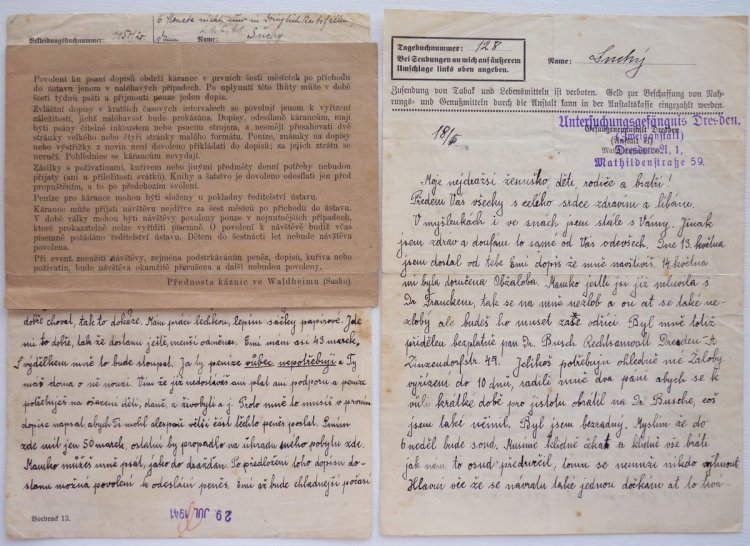 6 Monate nicht, nur in dringlichen Fällen
Bekleidungsbuchnummer: 1150/20
Name: Suchý
Povolení ku psaní dopisů obdrží káranec v prvních šesti měsících po příchodu
do ústavu jenom v naléhavých případech. Po uplynutí této lhůty může v době
šesti týdnů psáti a přijmouti pouze jeden dopis.
Zvláštní dopisy v kratších časových intervalech se povolují jenom k vyřízení
záležitostí, jichž naléhavost bude prokázána. Dopisy, odesílané kárancům, mají
být psány čitelně inkoustem nebo psacím strojem, a nesmějí přesahovati dvě
stránky velkého nebo čtyři stránky malého formátu. Peníze, známky na dopisy
nebo výstřižky z novin není dovoleno přikládati do dopisů; za jejich ztrátu se
neručí. Pohlednice se kárancům nevydají.
Zásilky s poživatinami, kuřivem nebo jinými předměty denní potřeby nebudou
přijaty (ani u příležitosti svátků). Knihy a šatstvo je dovoleno odesílati jen před
propuštěním, a to po předchozím svolení.
Peníze pro kárance mohou býti složeny u pokladny ředitelství ústavu.
Káranec může přijati návštěvu nejdříve za šest měsíců po příchodu do ústavu.
V době války mohou býti návštěvy, povoleny pouze v nejnutnějších případech,
které prokazatelně nelze vyříditi písemně. O povolení k návštěvě budiž včas
písemně požádáno ředitelství ústavu. Dětem do šestnácti let nebude návštěva
povolena.
Při event. zneužití návštěvy, zejména podstrkáváním peněz, dopisů, kuřiva nebo
poživatin, bude návštěva okamžitě přerušena a další nebudou povoleny.
Přednosta káznic ve Waldheimu (Sasko)
dobře chovat, tak to dokáže. Mám práci lehkou, lepím sáčky papírové. Jde
mi to dobře, tak že dostanu ještě menší odměnu. Emi mám asi 43 marek,
S výdělkem mně to bude stoupat. Já ty peníze vůbec nepotřebuji a Ty
máš doma o ně nouzi. Vím že již nedostáváš ani plat ani podporu a peníze
potřebuješ na ošacení dětí, daně, a živobytí a j. Proto mně to musíš v prvním
dopise napsat, abych Ti mohl alespoň větší část těchto peněz poslat. Smím
zde mít jen 50 marek, ostatní by propadlo na úhradu mého pobytu zde.
Mamko můžeš mně psát, jako do Drážďan. Po předložení toho dopisu do-
stanu možná povolení k odeslání peněz. Emi až bude chladnější počasí
Vordruck 13.
29 JUL 1941
Tagebuchnummer: 128
Bei Sendungen an mich auf äußerem
Umschlage links oben angeben.
Name: Suchý
Zusendung von Tabak und Lebensmitteln ist verboten. Geld zur Beschaffung von Nah-
rungs- und Genußmitteln durch die Anstalt kann in der Anstaltskasse eingezahlt werden.
18/5
Untersuchungsgefängnis Dresden.
Gefangenenanstalt Dresden
(Zweiganstalt)
Dresden-A. 1,
Mathildenstraße 59.
Moje nejdražší ženuško, děti, rodiče a bratři!
Předem Vás všecky s celého srdce zdravím a líbám.
V myšlenkách i ve snach jsem stále s Vámi. Jinak
jsem zdráv a doufám to samé od Vás odevšech. Dne 13. května
jsem dostal od tebe Emi dopis že mně navštíviš. 14 května
mi byla doručena Obžaloba. Mamko jestli jsi již mluvila s
Dr. Franckem, tak se na mně nezlob a on ať se také ne-
zlobý ale budeš ho muset zase odříci. Byl mně totiž
přidělen bezplatně pan Dr. Busch Rechtsanwalt Dresden-A
Zinzendorfstr. 49. Jelikož potřebuji ohledně mé Žaloby
vyřízení do 10 dnu, radili mně dva páni abych se k
vůli krátké době pro jistotu obrátil na Dr Busche, což
jsem také učinil. Byl jsem bezradný. Myslím že do
6 neděl bude soud. Musíme klidně čekat a klidně vše bráti
jak nám to osud předurčil, tomu se nemůže nikdo vyhnout.
Hlavní věc že se návratu také jednou dočkám ať to trva-